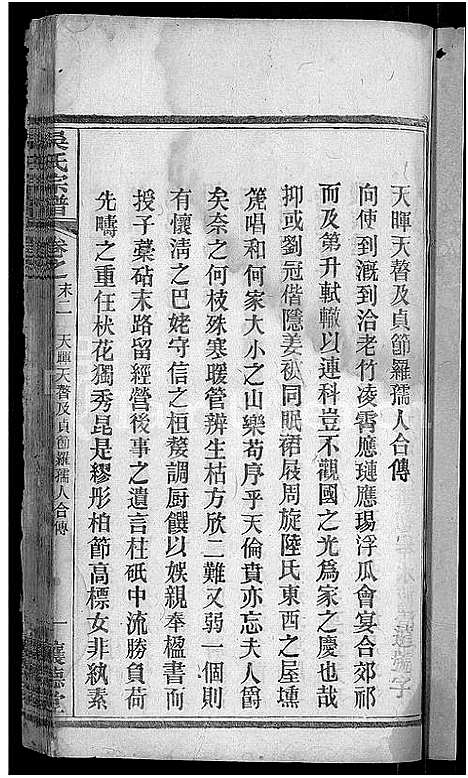 天暉天瞽及貞節羅孺人合傳
向使到溉到洽老竹凌霄應璉應瑒浮瓜會宴合郊祁
而及第升軾轍以連科豈不觀國之光爲家之慶也哉
抑或劉冠偕隱姜袚同眠裙屐周旋陸氏東西之屋壎
篪唱和何家大小之山樂苟序乎天倫賁亦忘夫人爵
矣奈之何枝殊寒暖管辨生枯方欣二難又弱一個則
有懷淸之巴姥守信之桓嫠調厨饌以娛親奉楹書而
授子藁砧末路留經營後事之遺言柱砥中流勝負荷
先疇之重任杕花獨秀昆是繆彤柏節高標女非紈素
吳氏宗譜
卷之末二
天暉天瞽及貞節羅孺人合傳
一
讓德堂